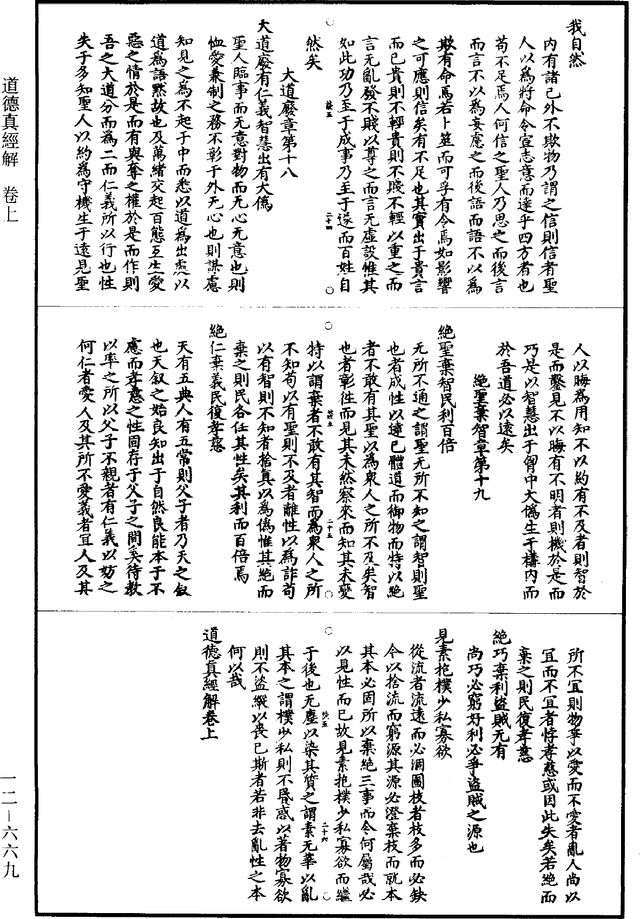 我自然
内有諸己外不欺物乃謂之信則信者聖
人以為將命令宣志意而達乎四方者也
苟不足焉人何信之聖人乃思之而後言
而言不以為妄慮之而後語而語不以為
欺有命焉若卜筮而可孚有令焉如影響
之可應則信矣有不足也其實出于貴言
而已貴則不輕貴則不賤不輕以重之而
言无亂發不賤以尊之而言无虛設惟其
如此功乃至于成事乃至于遂而百姓自
然矣
大道廢章第十八
大道廢有仁義智慧出有大偽
聖人臨事而无意對物而无心无意也則
恤愛兼制之務不彰于外无心也則謀慮
知見之為不起于中而悉以道為出處以
道為語默故也及萬緒交起百態互生愛
惡之情於是而有與奪之權於是而作則
吾之大道分而為二而仁義所以行也性
失于多知聖人以約為守機生于遠見聖
人以晦為用知不以約有不及者則智於
是而鑿見不以晦有不明者則機於是而
巧是以智慧出于胷中大偽生于構内而
於吾道必以遠矣
絶聖棄智章第十九
絶聖棄智民利百倍
无所不通之謂聖无所不知之謂智則聖
也者成性以達己體道而御物而特以絶
者不敢有其聖以為衆人之所不及矣智
也者彰往而見其未然察來而知其未變
特以謂棄者不敢有其智而為衆人之所
不知苟以有聖則不及者離性以為詐苟
以有智則不知者捨真以為偽惟其絶而
棄之則民各任其性矣其利而百倍焉
絶仁棄義民復孝慈
天有五典人有五常則父子者乃天之叙
也天叙之始良知出于自然良能本于不
慮而孝慈之性固存于父子之間奚待教
以率之所以父子不親者有仁義以妨之
何仁者愛人及其所不愛義者宜人及其
所不宜則物率以愛而不愛者亂人尚以
宜而不宜者悖孝慈或因此失矣若絶而
棄之則民復孝慈
絶巧棄利盜賊无有
尚巧必窮好利必爭盜賊之源也
見素抱樸少私寡欲
從流者流遠而必涸圖枝者枝多而必缺
今以捨流而窮源其源必澄棄枝而就本
其本必固所以棄絶三事而令何屬哉必
以見性而已故見素抱樸少私寡欲而繼
于後也无塵以染其質之謂素无華以亂
其本之謂樸少私則不昬惑以著物寡欲
則不盜縱以喪己斯者若非去亂性之本
何以哉
道德真經解卷上
道德真經解 卷上
一二－六六九